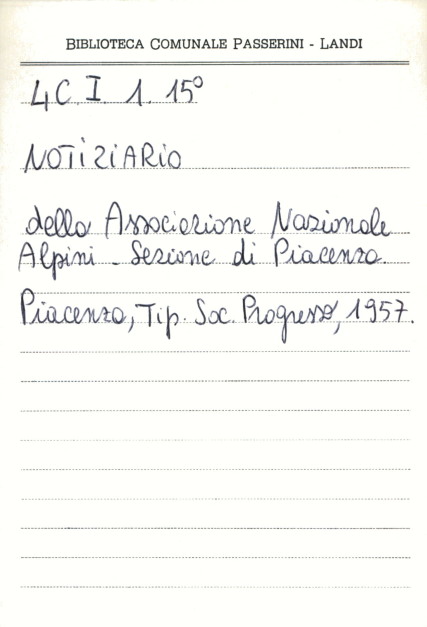 BIBLIOTECA COMUNALE PASSERINI - LANDI
4C. I. 1. 15°
NOTIZIARIO
della Associazione Nazionale
Alpini - Sezione di Piacenza.
Piacenza, Tip. Soc. Progresso, 1957.